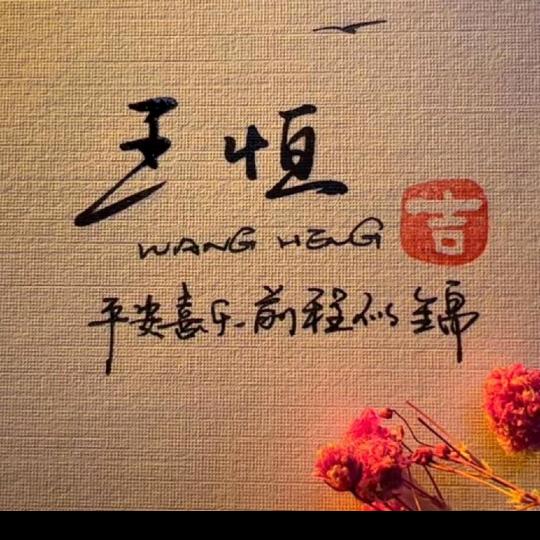 王恒
WANG HENG
吉
平安喜乐前程似锦